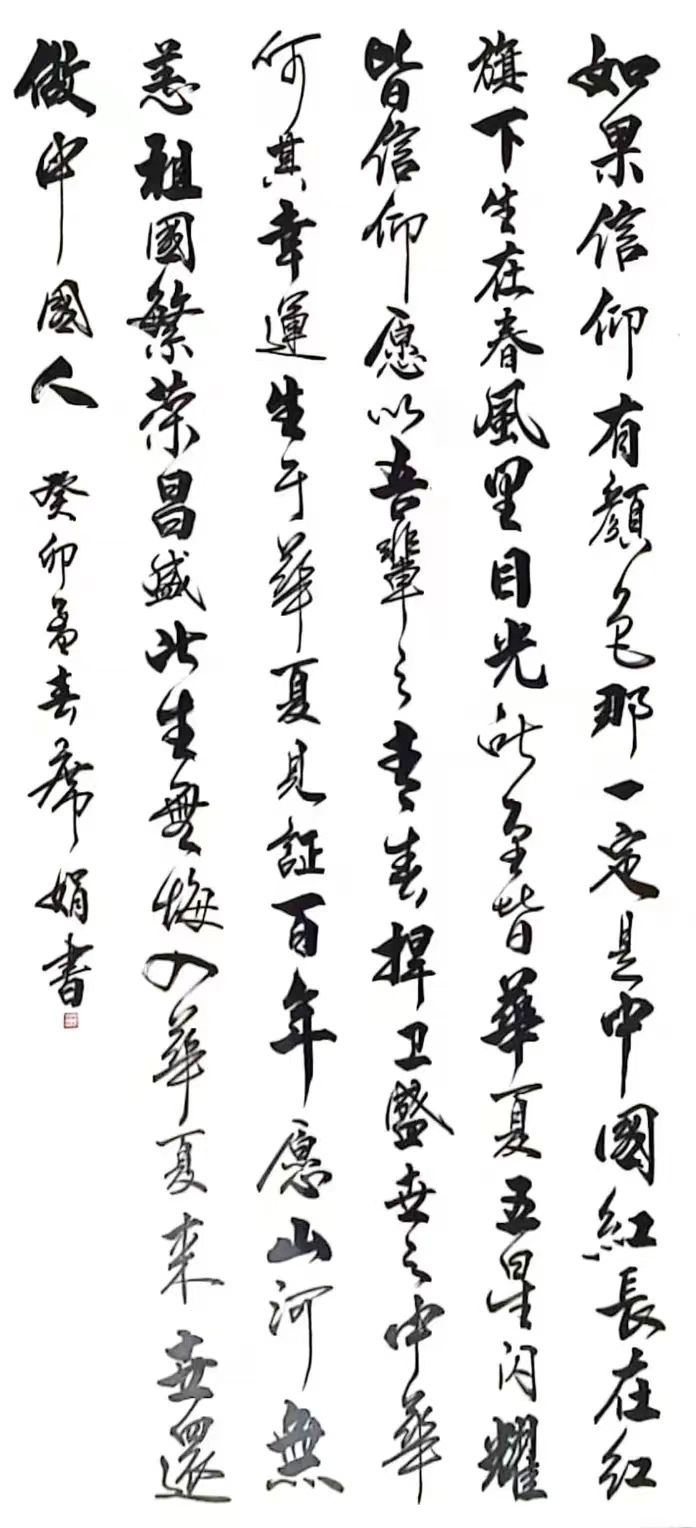 如果信仰有顏色那一定是中國紅長在紅
旗下生在春風里目光所至皆華夏五星閃耀
皆信仰愿以吾輩之青春捍卫盛世之中華
何其幸運生于華夏見証百年愿山河無
恙祖國繁荣昌盛此生無悔入華夏来世還
做中國人 癸卯孟春席娟書